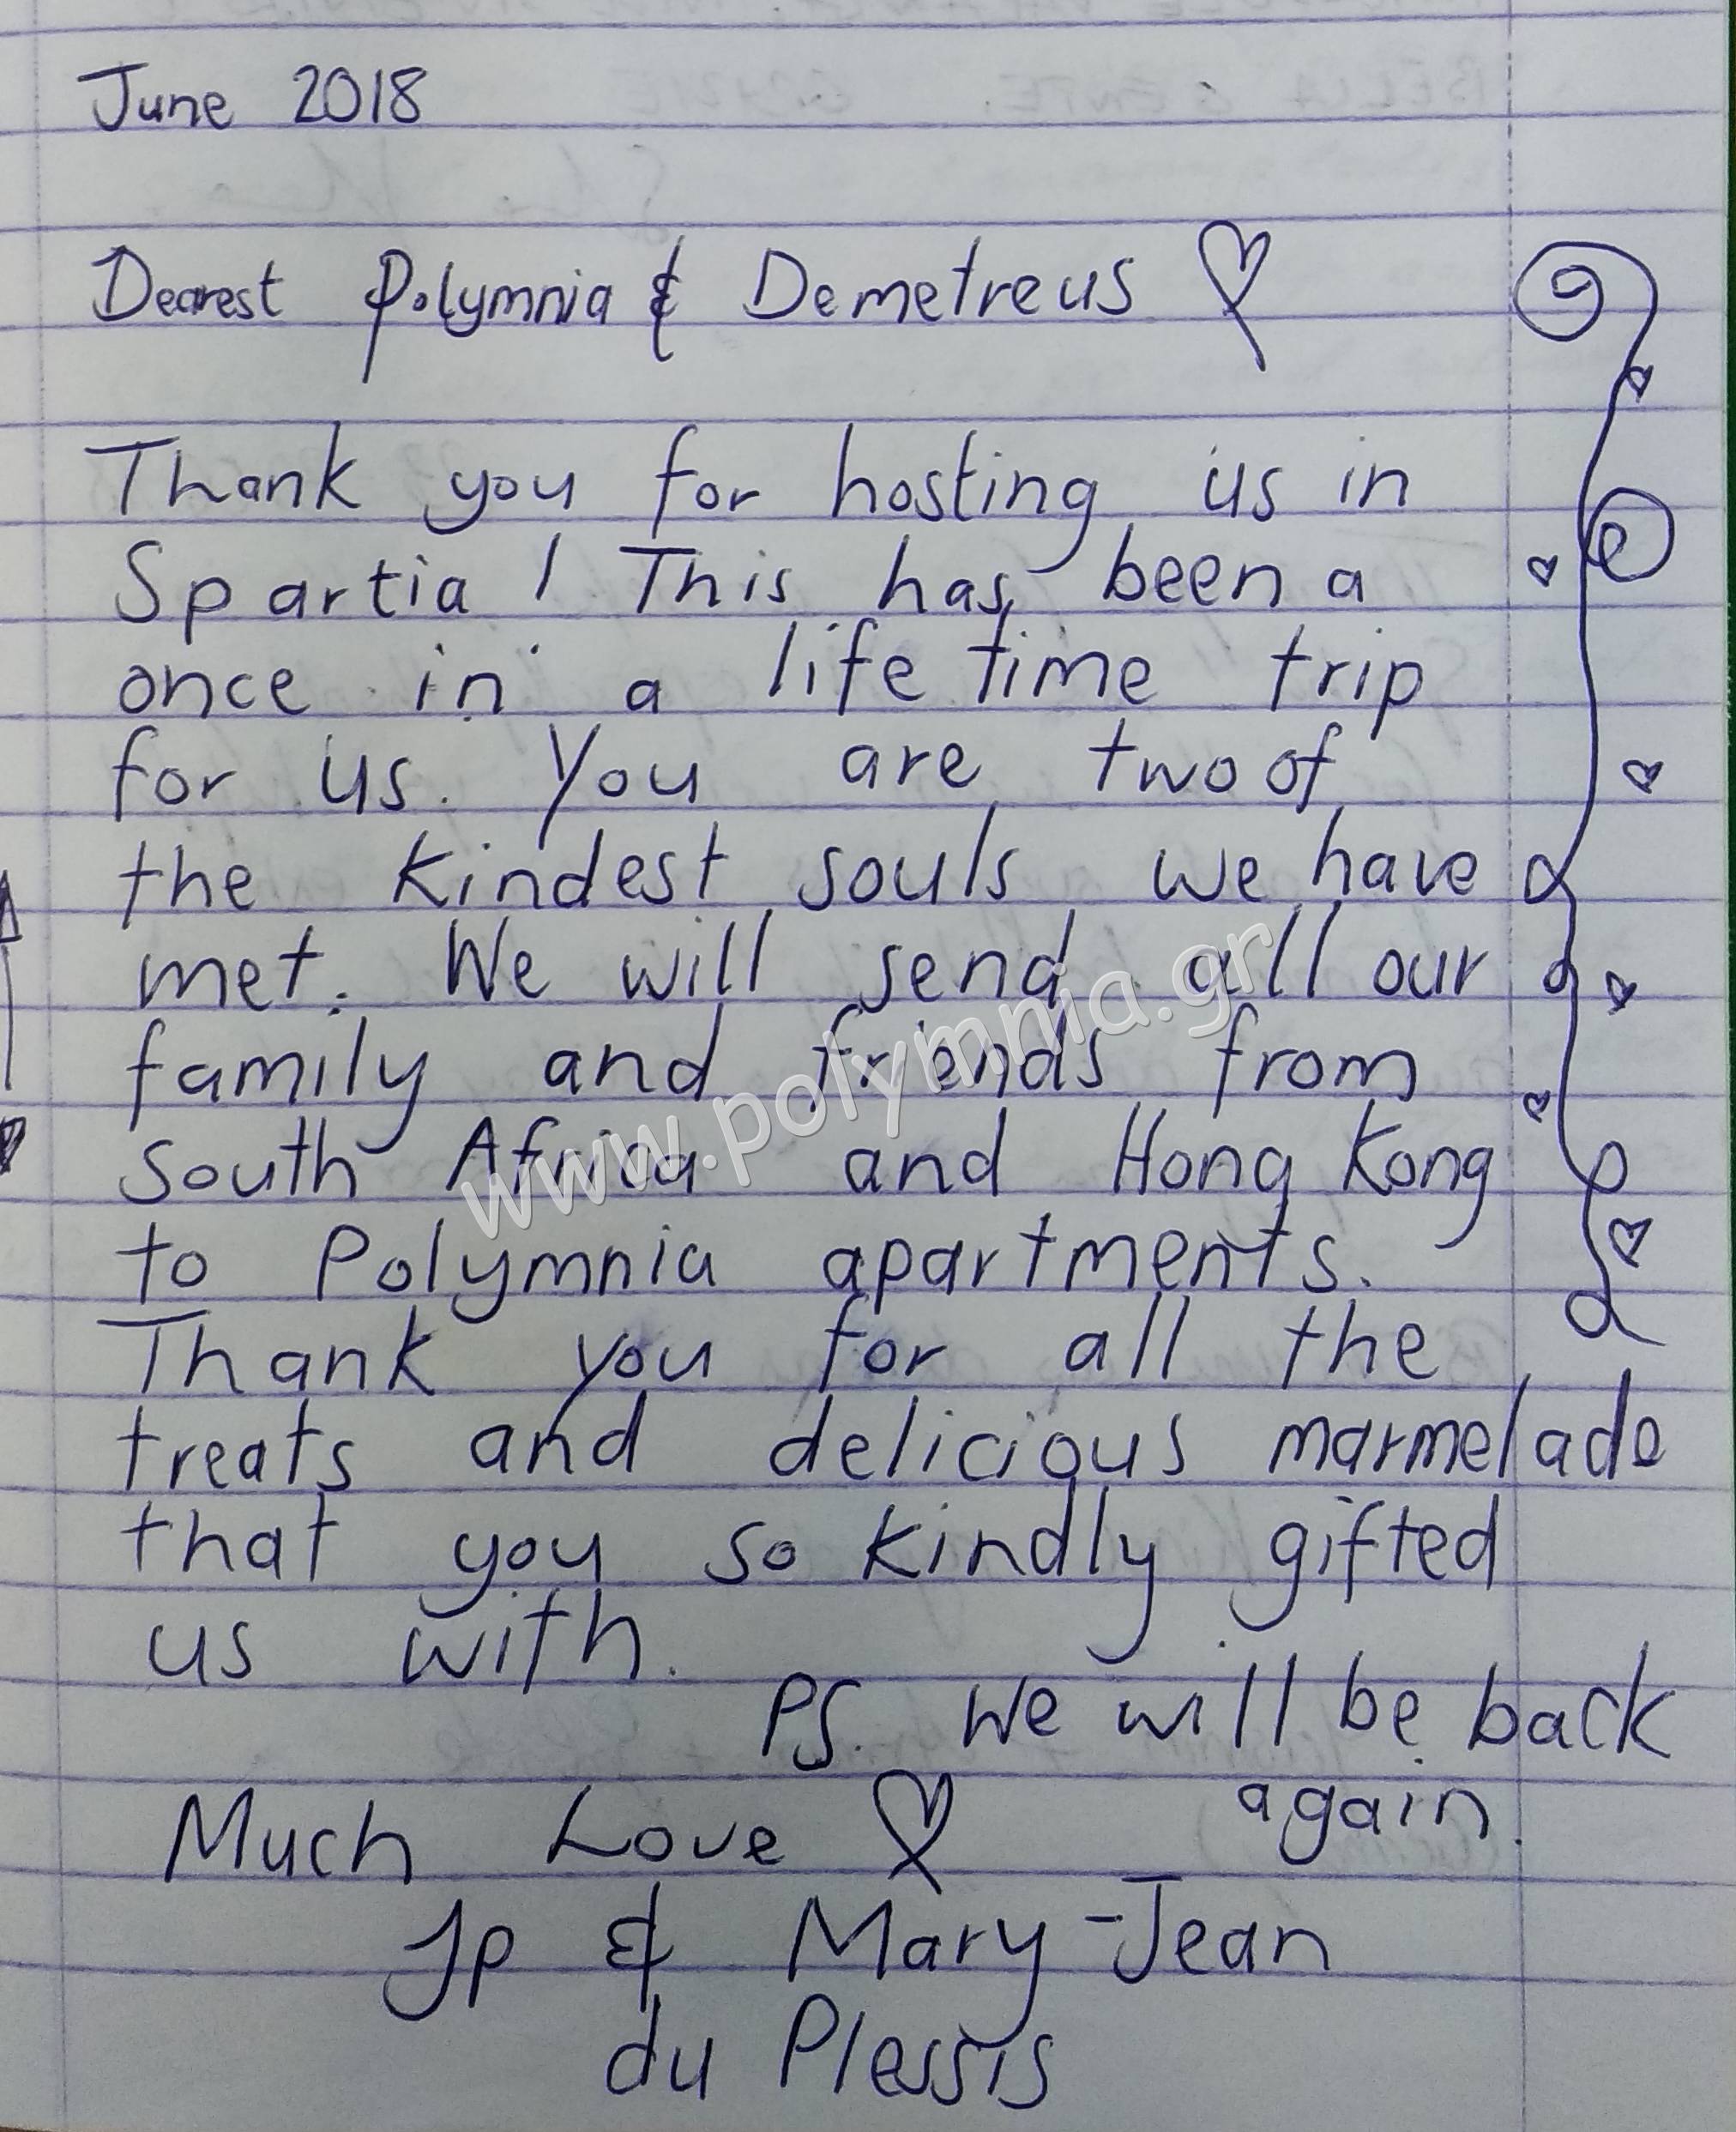 June 2018
Dearest Polymnia & Demetreus ♡
Thank you for hosting us in
Spartia! This has been a
once in a life time trip
for us. You are two of
the kindest souls we have
met. We will send all our
family and friends from
South Africa and Hong Kong
to Polymnia apartments.
Thank you for all the
treats and delicious marmelade
that you so kindly gifted
us with.
PS. We will be back
again.
Much Love ♡
Jp & Mary-Jean
du Plessis
www.polymnia.gr